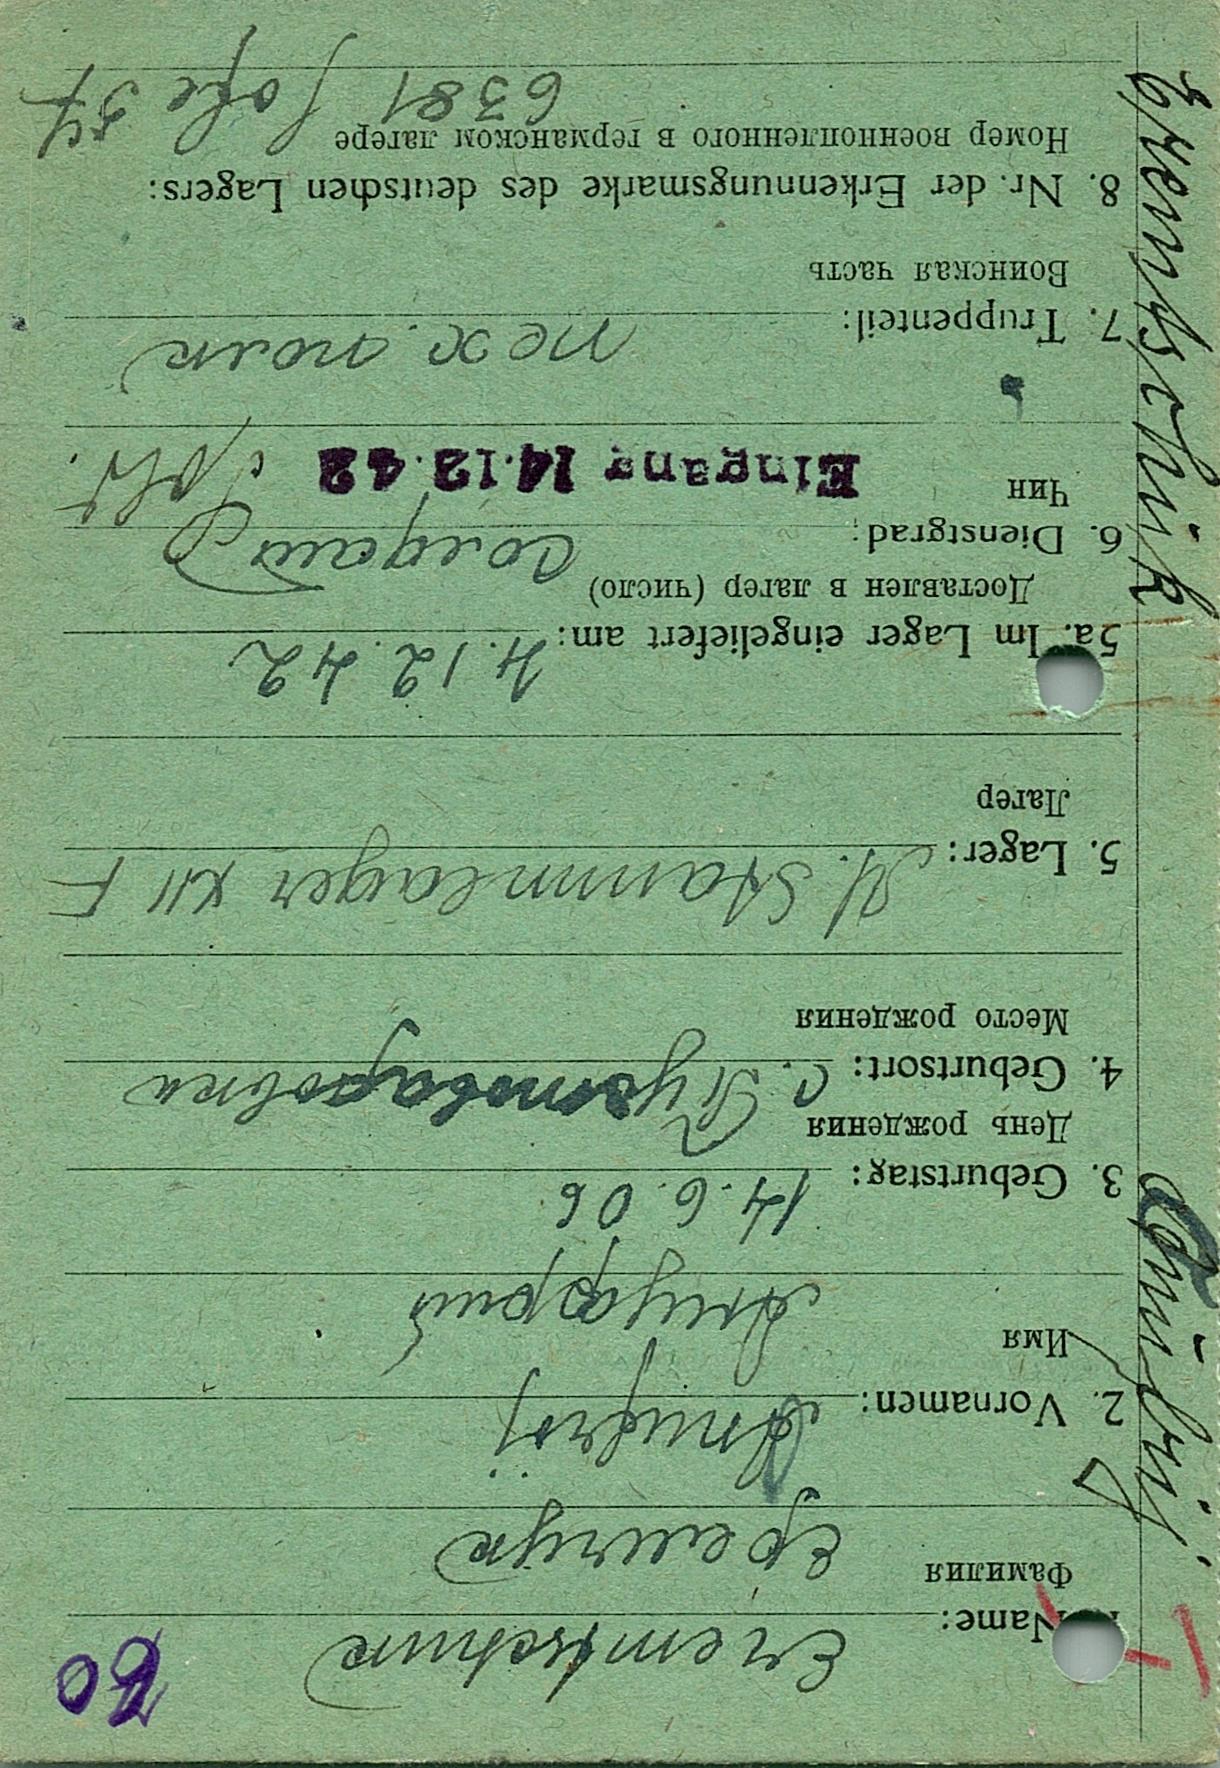 60
1. Name: Eremtschuk
Фамилия
Еремчук
2. Vornamen: Anufrij
Имя
Ануфрий
3. Geburtstag: 14.6.06
День рождения
4. Geburtsort: с.
Место рождения
5. Lager: M. Stammlager XII F
Лагер
5a. Im Lager eingeliefert am: 4.12.42
Доставлен в лагер (число)
6. Dienstgrad: Солдат Sold.
Чин
Eingang 14.12.42
7. Truppenteil: пех. полк
Воинская часть
8. Nr. der Erkennungsmarke des deutschen Lagers:
Номер военнопленного в германском лагере
6381
Eremtschük
Anüfrij